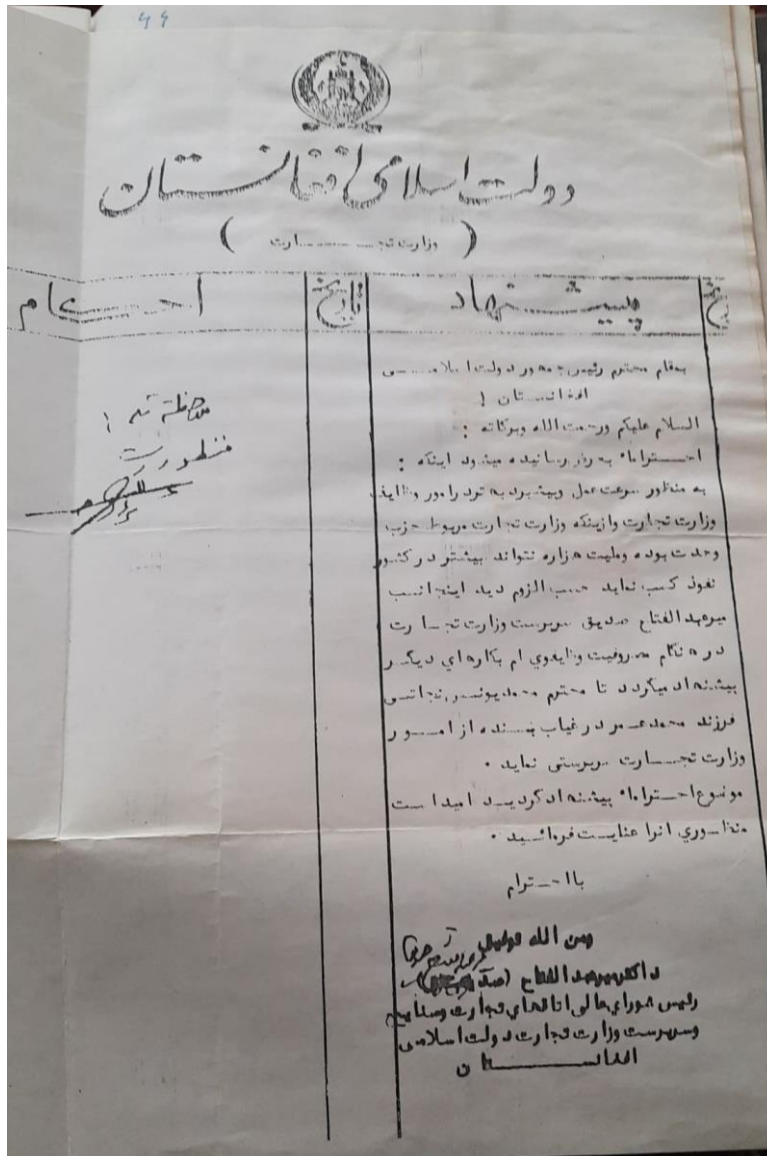 ۴۴
دولت اسلامی افغانستان
( وزارت تجـــــــارت )
تاریخ پیشنهاد تاریخ احکام
بمقام محترم رئیس جمهور دولت اسلامــــی
افغانستان !
السلام علیکم ورحمت الله وبرکاته :
احتراماً به عرض رسانیده میشود اینکه :
به منظور سرعت عمل وپیشبرد به تر در امور وظایف
وزارت تجارت وازینکه وزارت تجارت مربوط حزب
وحدت بوده وملیت هزاره نتواند بیشتر در کشور
نفوذ کسب نماید حسب الزوم دید اینجانب
میرعبدالفتاح صدیق سرپرست وزارت تجــارت
در هنگام مصروفیت وظایفوی ام بکارهای دیگر
پیشنهاد میگردد تا محترم محمدیونس نجاتی
فرزند محمدعمر در غیاب بنده از امــور
وزارت تجــارت سرپرستی نماید .
موضوع احتراماً پیشنهاد گردیــد امید است
منظــوری آنرا عنایت فرمائید .
بااحترام
ومن الله توفیق
داکتر میرعبدالفتاح
رئیس شورای عالی اتاقهای تجارت وصنایع
وسرپرست وزارت تجارت دولت اسلامی
افغانســــــتان
ملاحظه شد !
منظور است